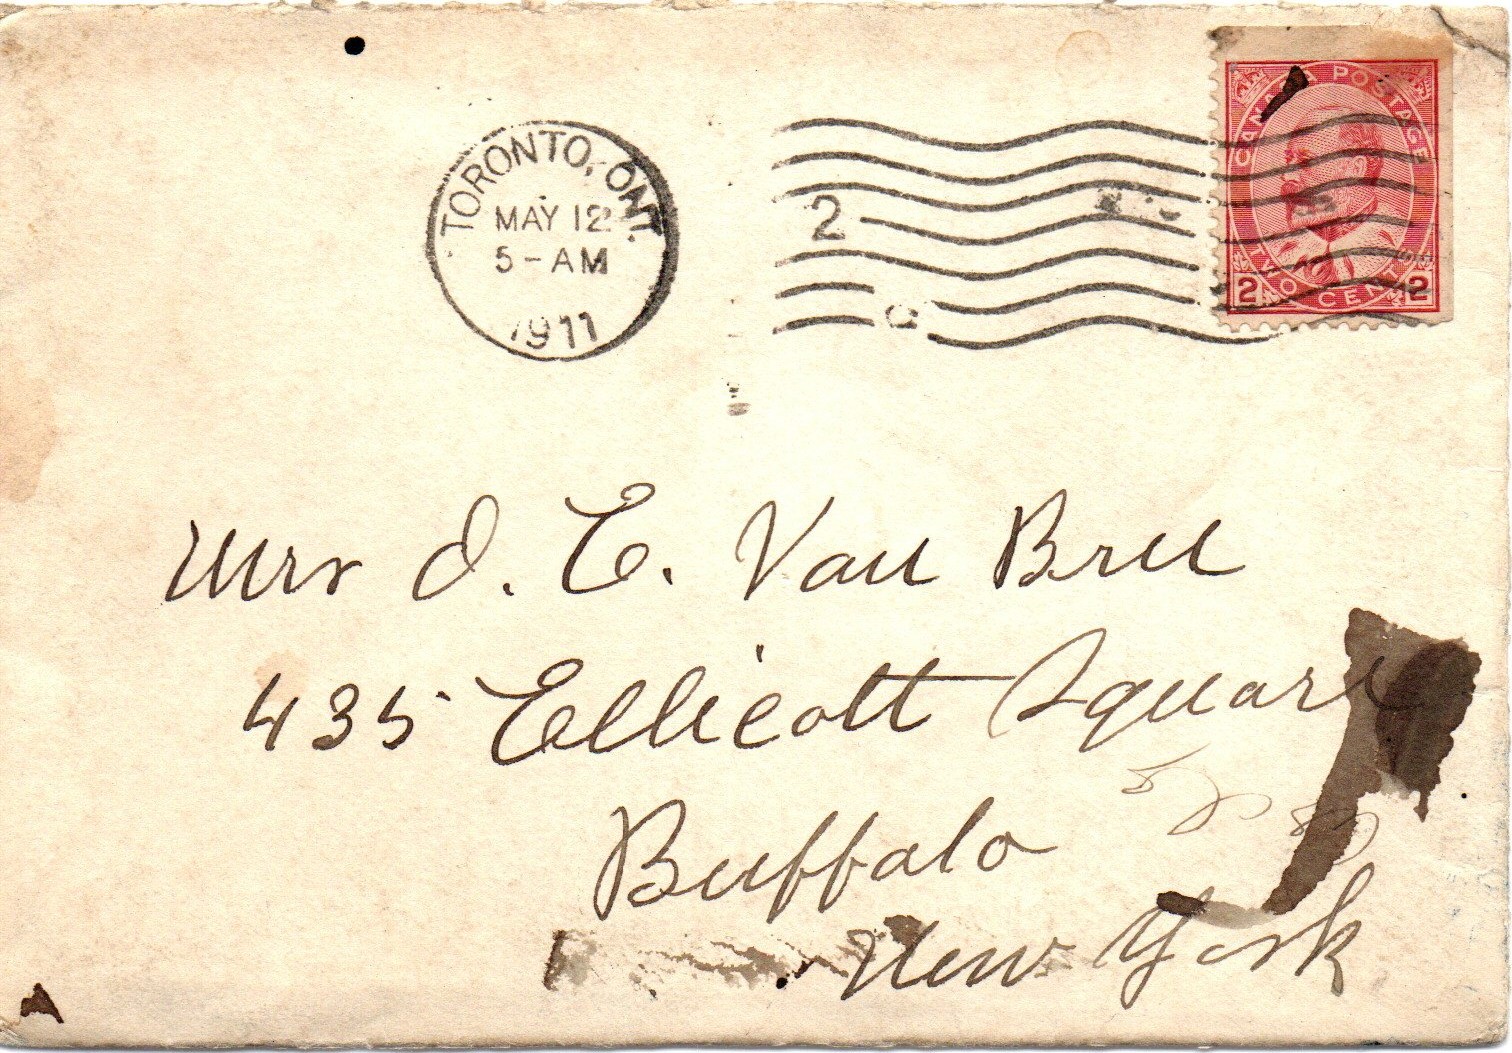 TORONTO, ONT.
MAY 12
5-AM
1911
2
CANADA POSTAGE
2 TWO CENTS 2
Mrs I. E. Van Bree
435 Ellicott Square
Buffalo
New York